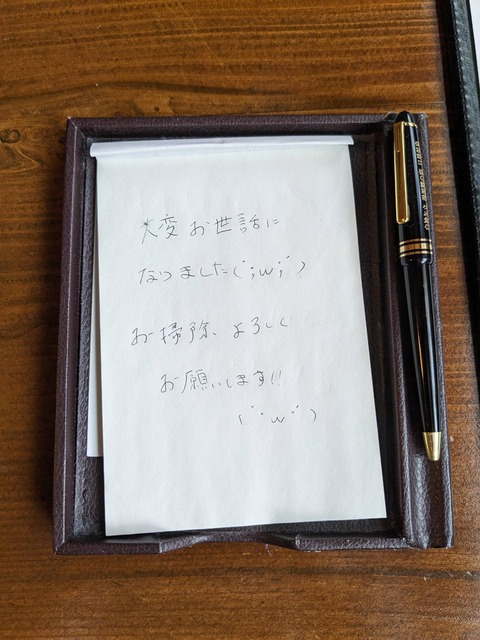 大変お世話に
なりました(´;ω;`)
お掃除、よろしく
お願いします!!
(´・ω・`)